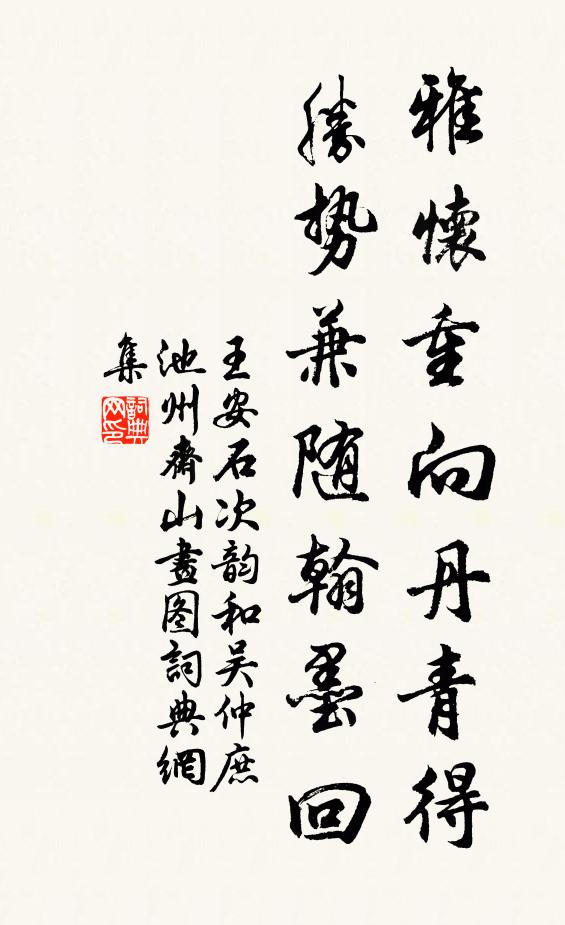 雅懷重向丹青得
勝势兼随翰墨回
王安石次韵和吴仲庶
池州齋山畫图詞典網
集
詞典网印